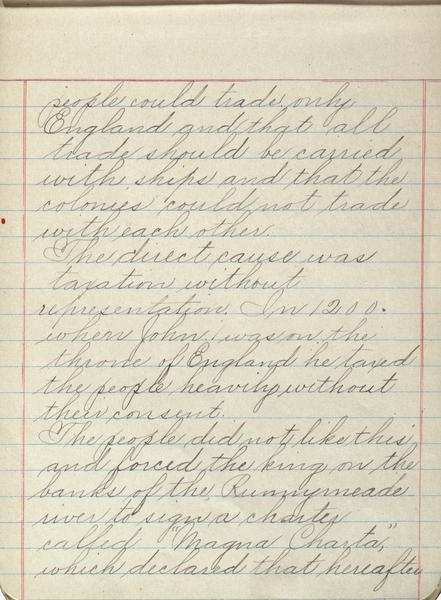 people could trade only
England and that all
trade should be carried
with ships and that the
colonies could not trade
with each other.
The direct cause was
taxation without
representation. In 1200.
when John, was on the
throne of England he taxed
the people heavily without
their consent.
The people did not like this
and forced the king on the
banks of the Runnymeade
river to sign a charter
called "Magna Charta,"
which declared that hereafter